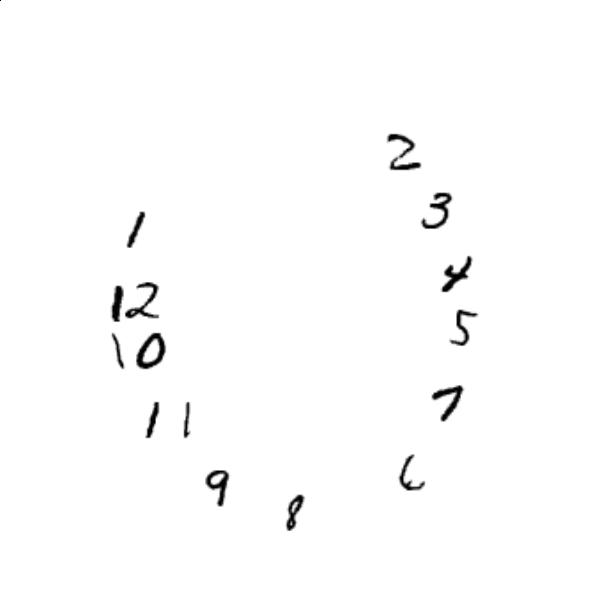 2
3
1
4
12
5
10
7
11
6
9
8